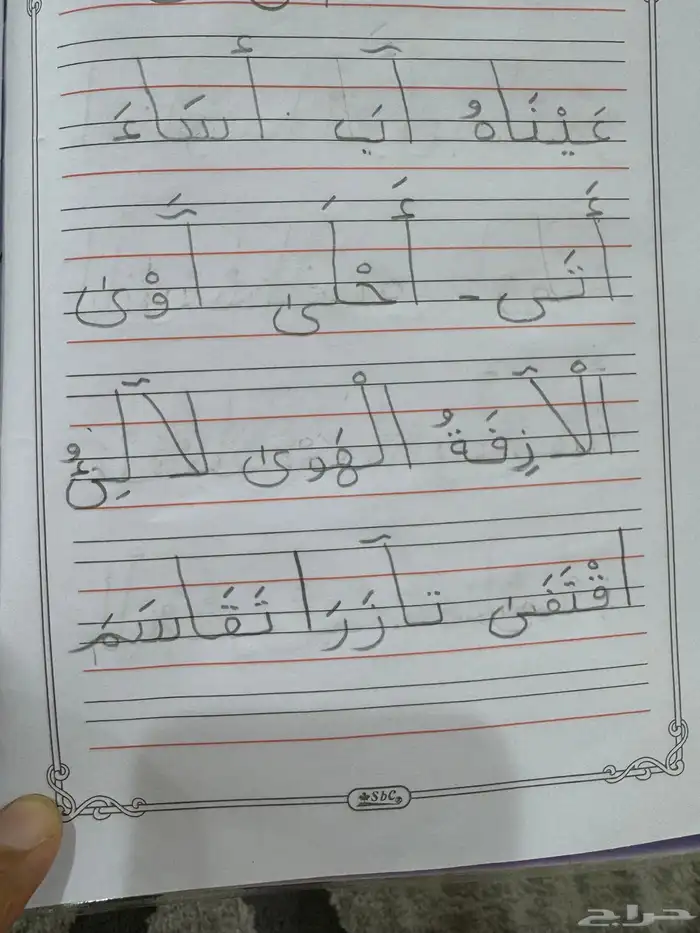 عَيْنَاهُ أَسَاءَ
أَتَىٰ أَحْلَىٰ
الْآزِفَةُ الْهَوَىٰ
اقْتَفَىٰ تَآزَرَ تَقَاسَمَ
SbC
حراج